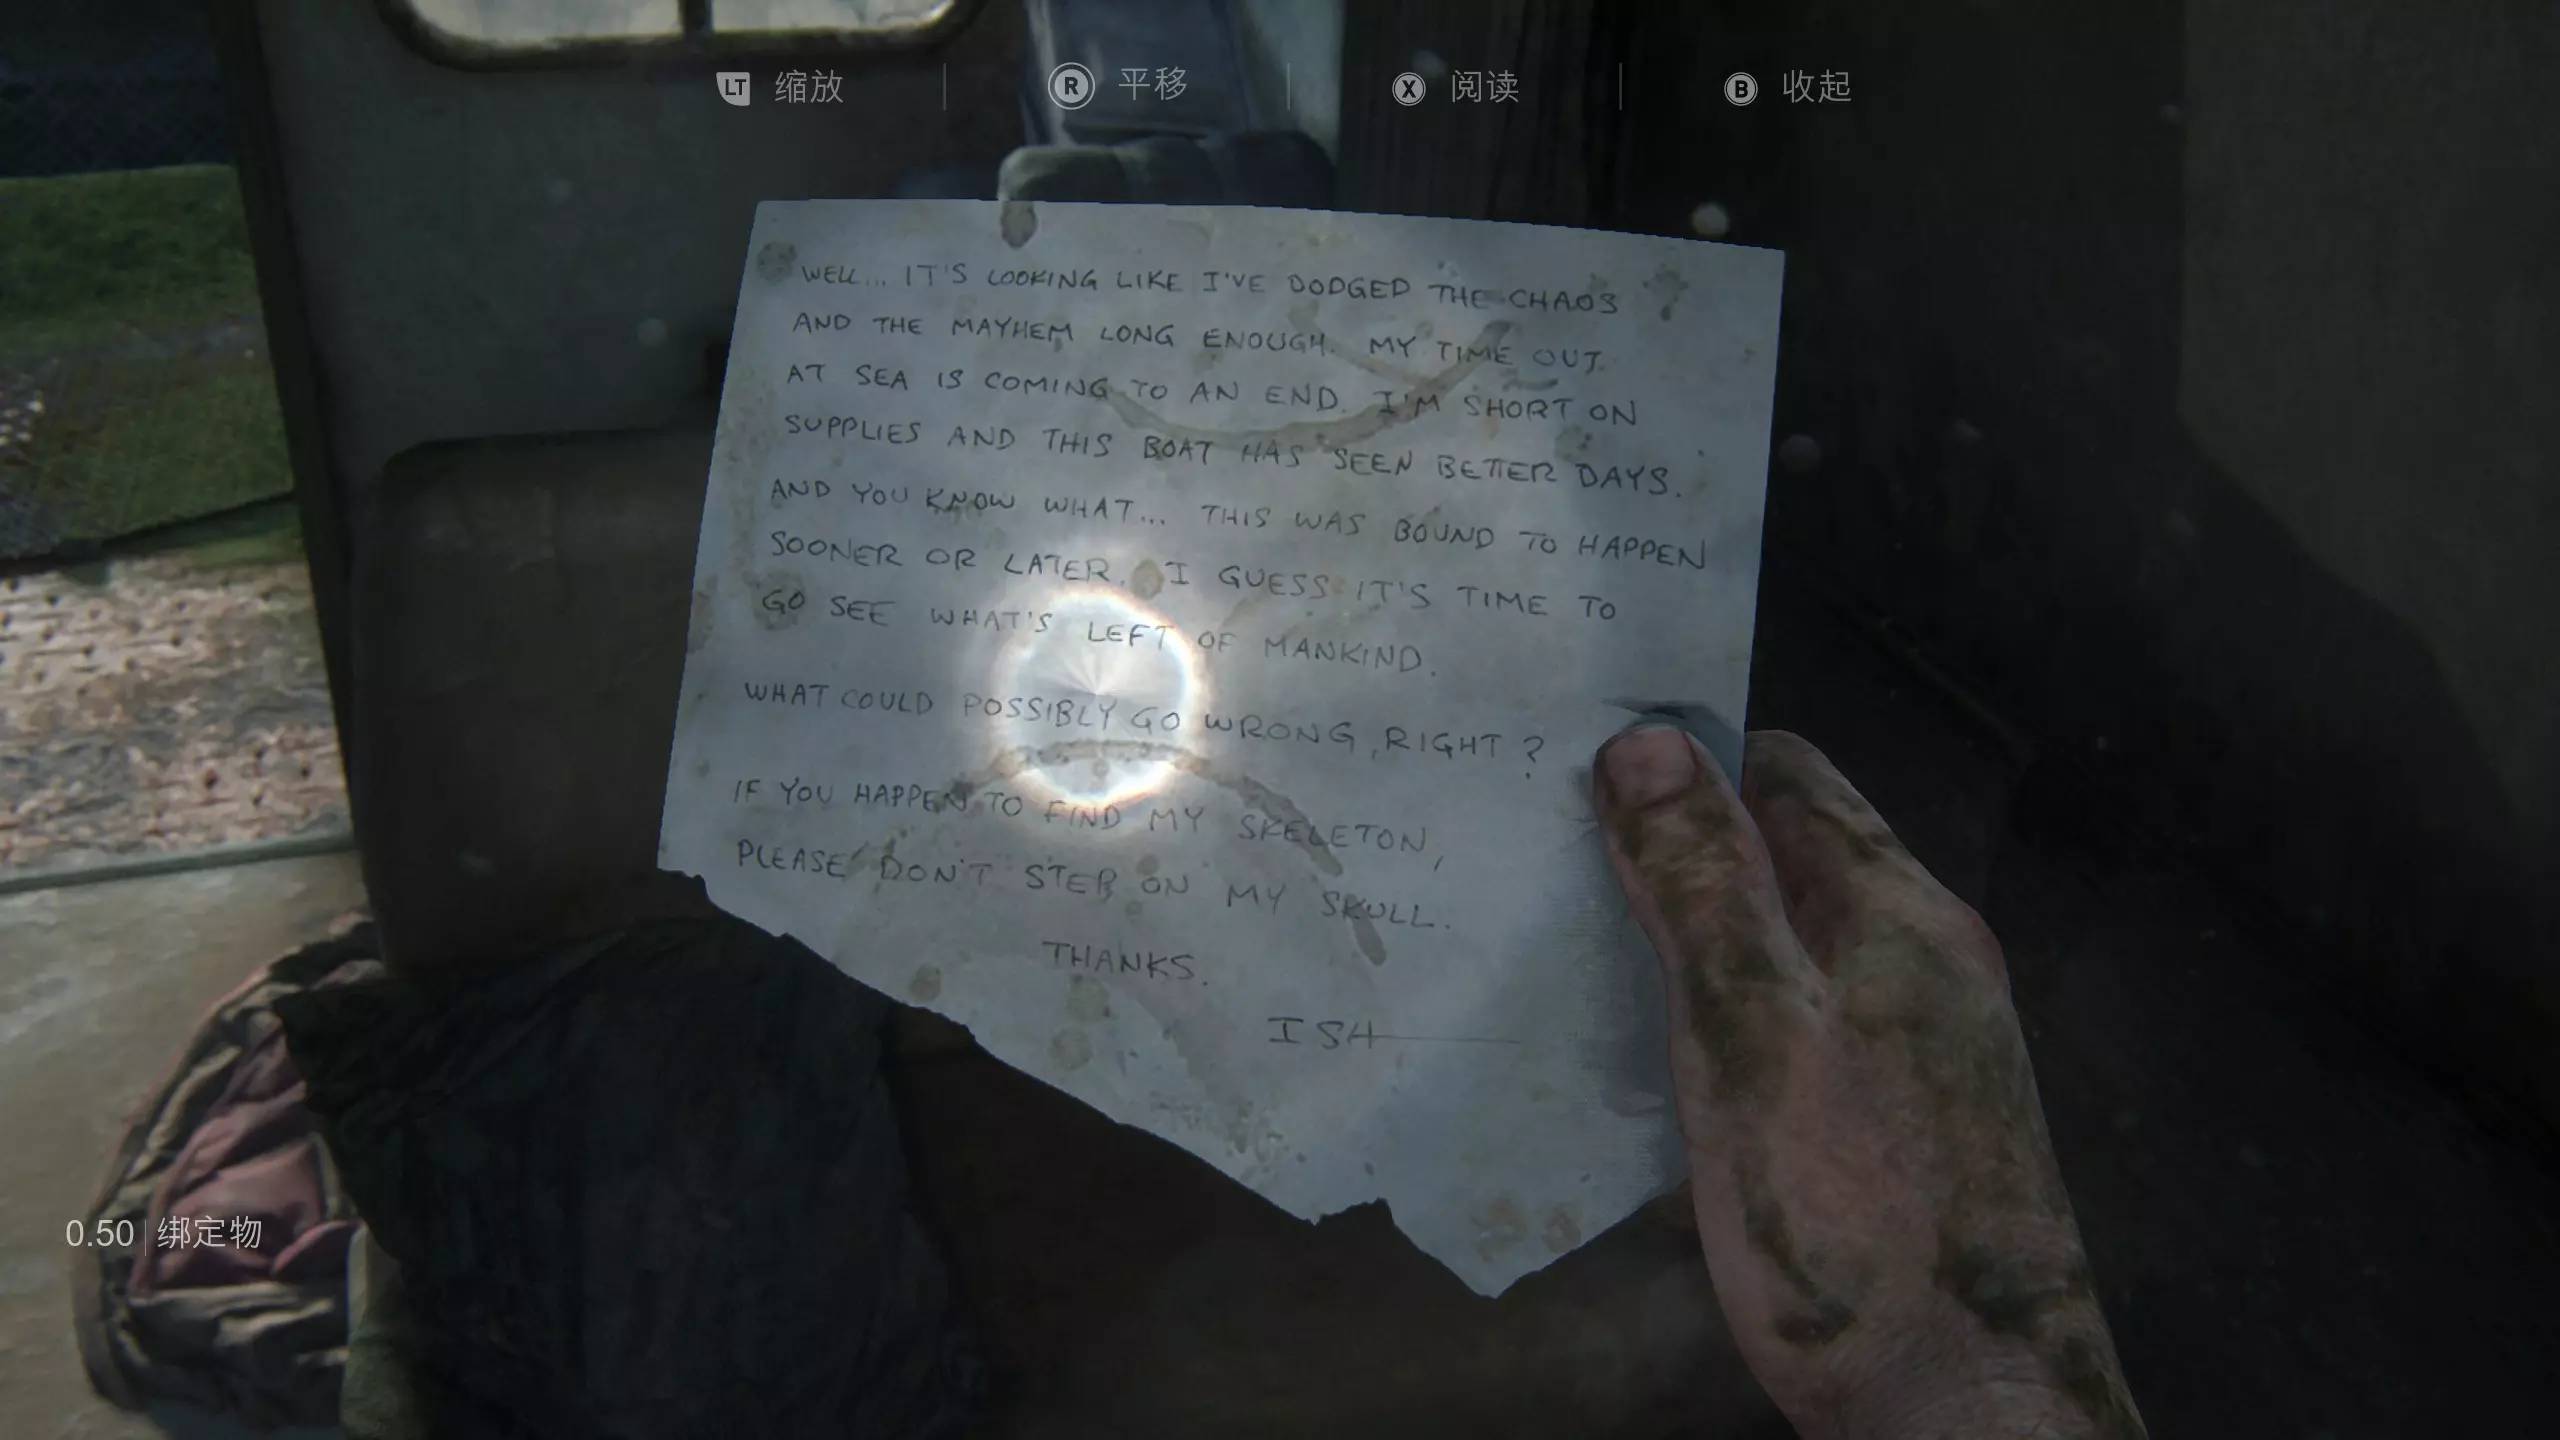 LT 缩放 R 平移 X 阅读 B 收起
WELL... IT'S LOOKING LIKE I'VE DODGED THE CHAOS
AND THE MAYHEM LONG ENOUGH. MY TIME OUT
AT SEA IS COMING TO AN END. I'M SHORT ON
SUPPLIES AND THIS BOAT HAS SEEN BETTER DAYS.
AND YOU KNOW WHAT... THIS WAS BOUND TO HAPPEN
SOONER OR LATER. I GUESS IT'S TIME TO
GO SEE WHAT'S LEFT OF MANKIND.
WHAT COULD POSSIBLY GO WRONG, RIGHT?
IF YOU HAPPEN TO FIND MY SKELETON,
PLEASE DON'T STEP ON MY SKULL.
THANKS.
ISH
0.50 绑定物